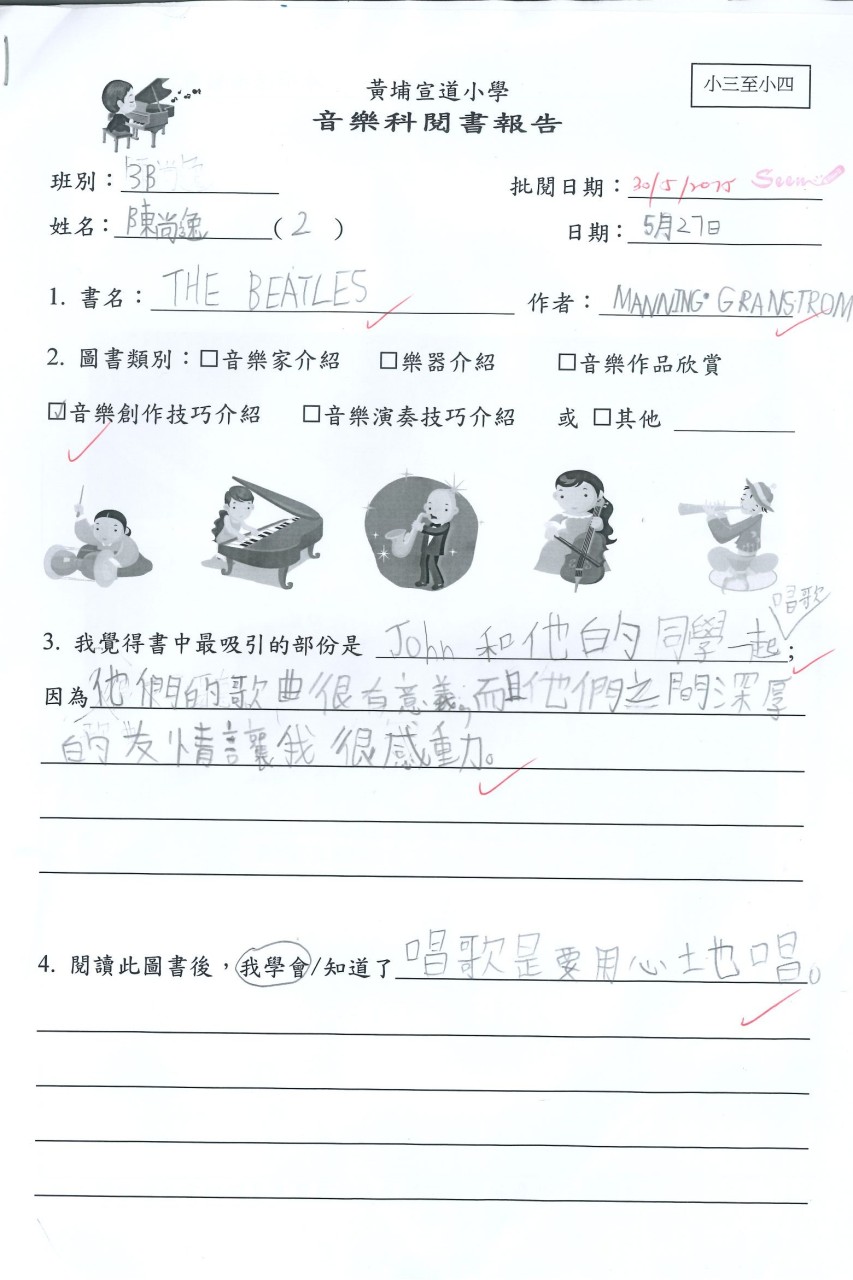 小三至小四
黃埔宣道小學
音樂科閱書報告
班別：3B
批閱日期：30/5/2015
姓名：陳尚逸 ( 2 )
日期：5月27日
1. 書名： THE BEATLES 作者： MANNING·GRANSTROM
2. 圖書類別：☐音樂家介紹 ☐樂器介紹 ☐音樂作品欣賞
☑音樂創作技巧介紹 ☐音樂演奏技巧介紹 或 ☐其他
唱歌
3. 我覺得書中最吸引的部份是 John 和他的同學一起；
因為他們的歌曲很有意義,而且他們之間深厚
的友情讓我很感動。
4. 閱讀此圖書後，我學會/知道了唱歌是要用心土也唱。